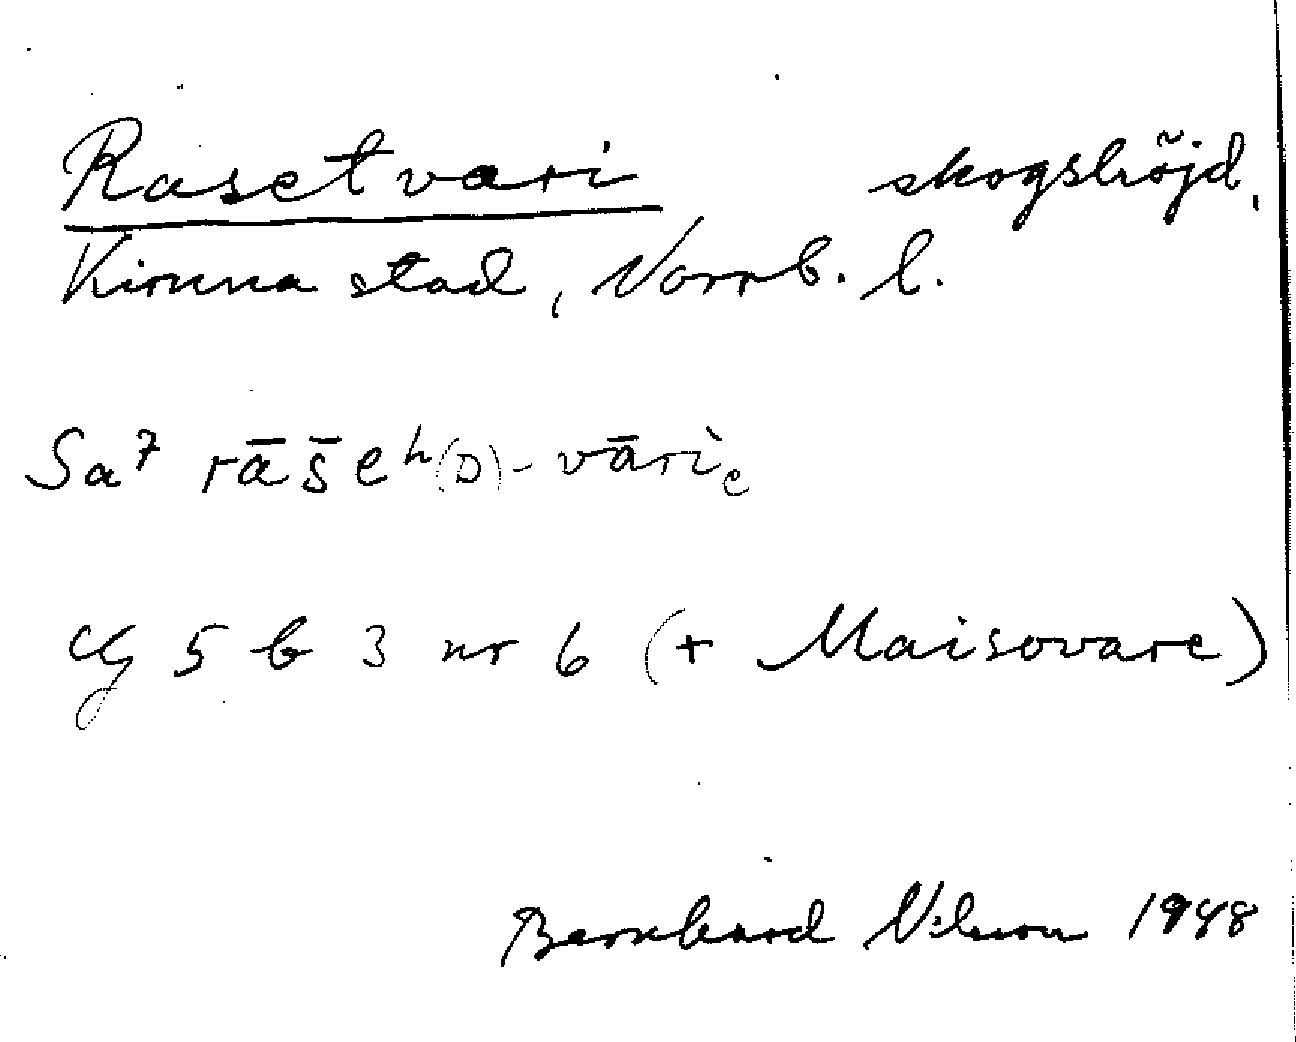 Rasetvari skogshöjd,
Kiruna stad, Norrb. l.
Sa⁷ rāšeʰ(D)-vāriₑ
5 b 3 nr 6 (+ Maisovare)
Bernhard Nilsson 1948